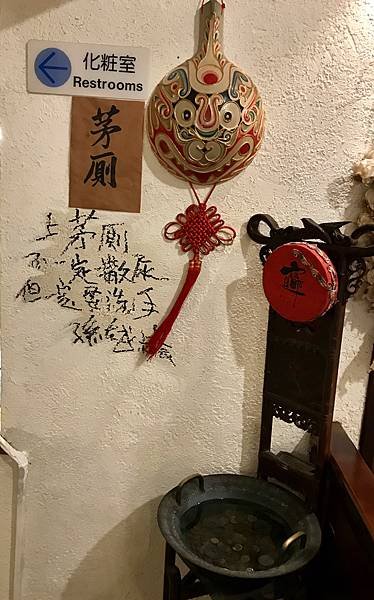 化粧室
Restrooms
茅厠
上茅厠
不一定撒尿
但一定要洗手
孫越